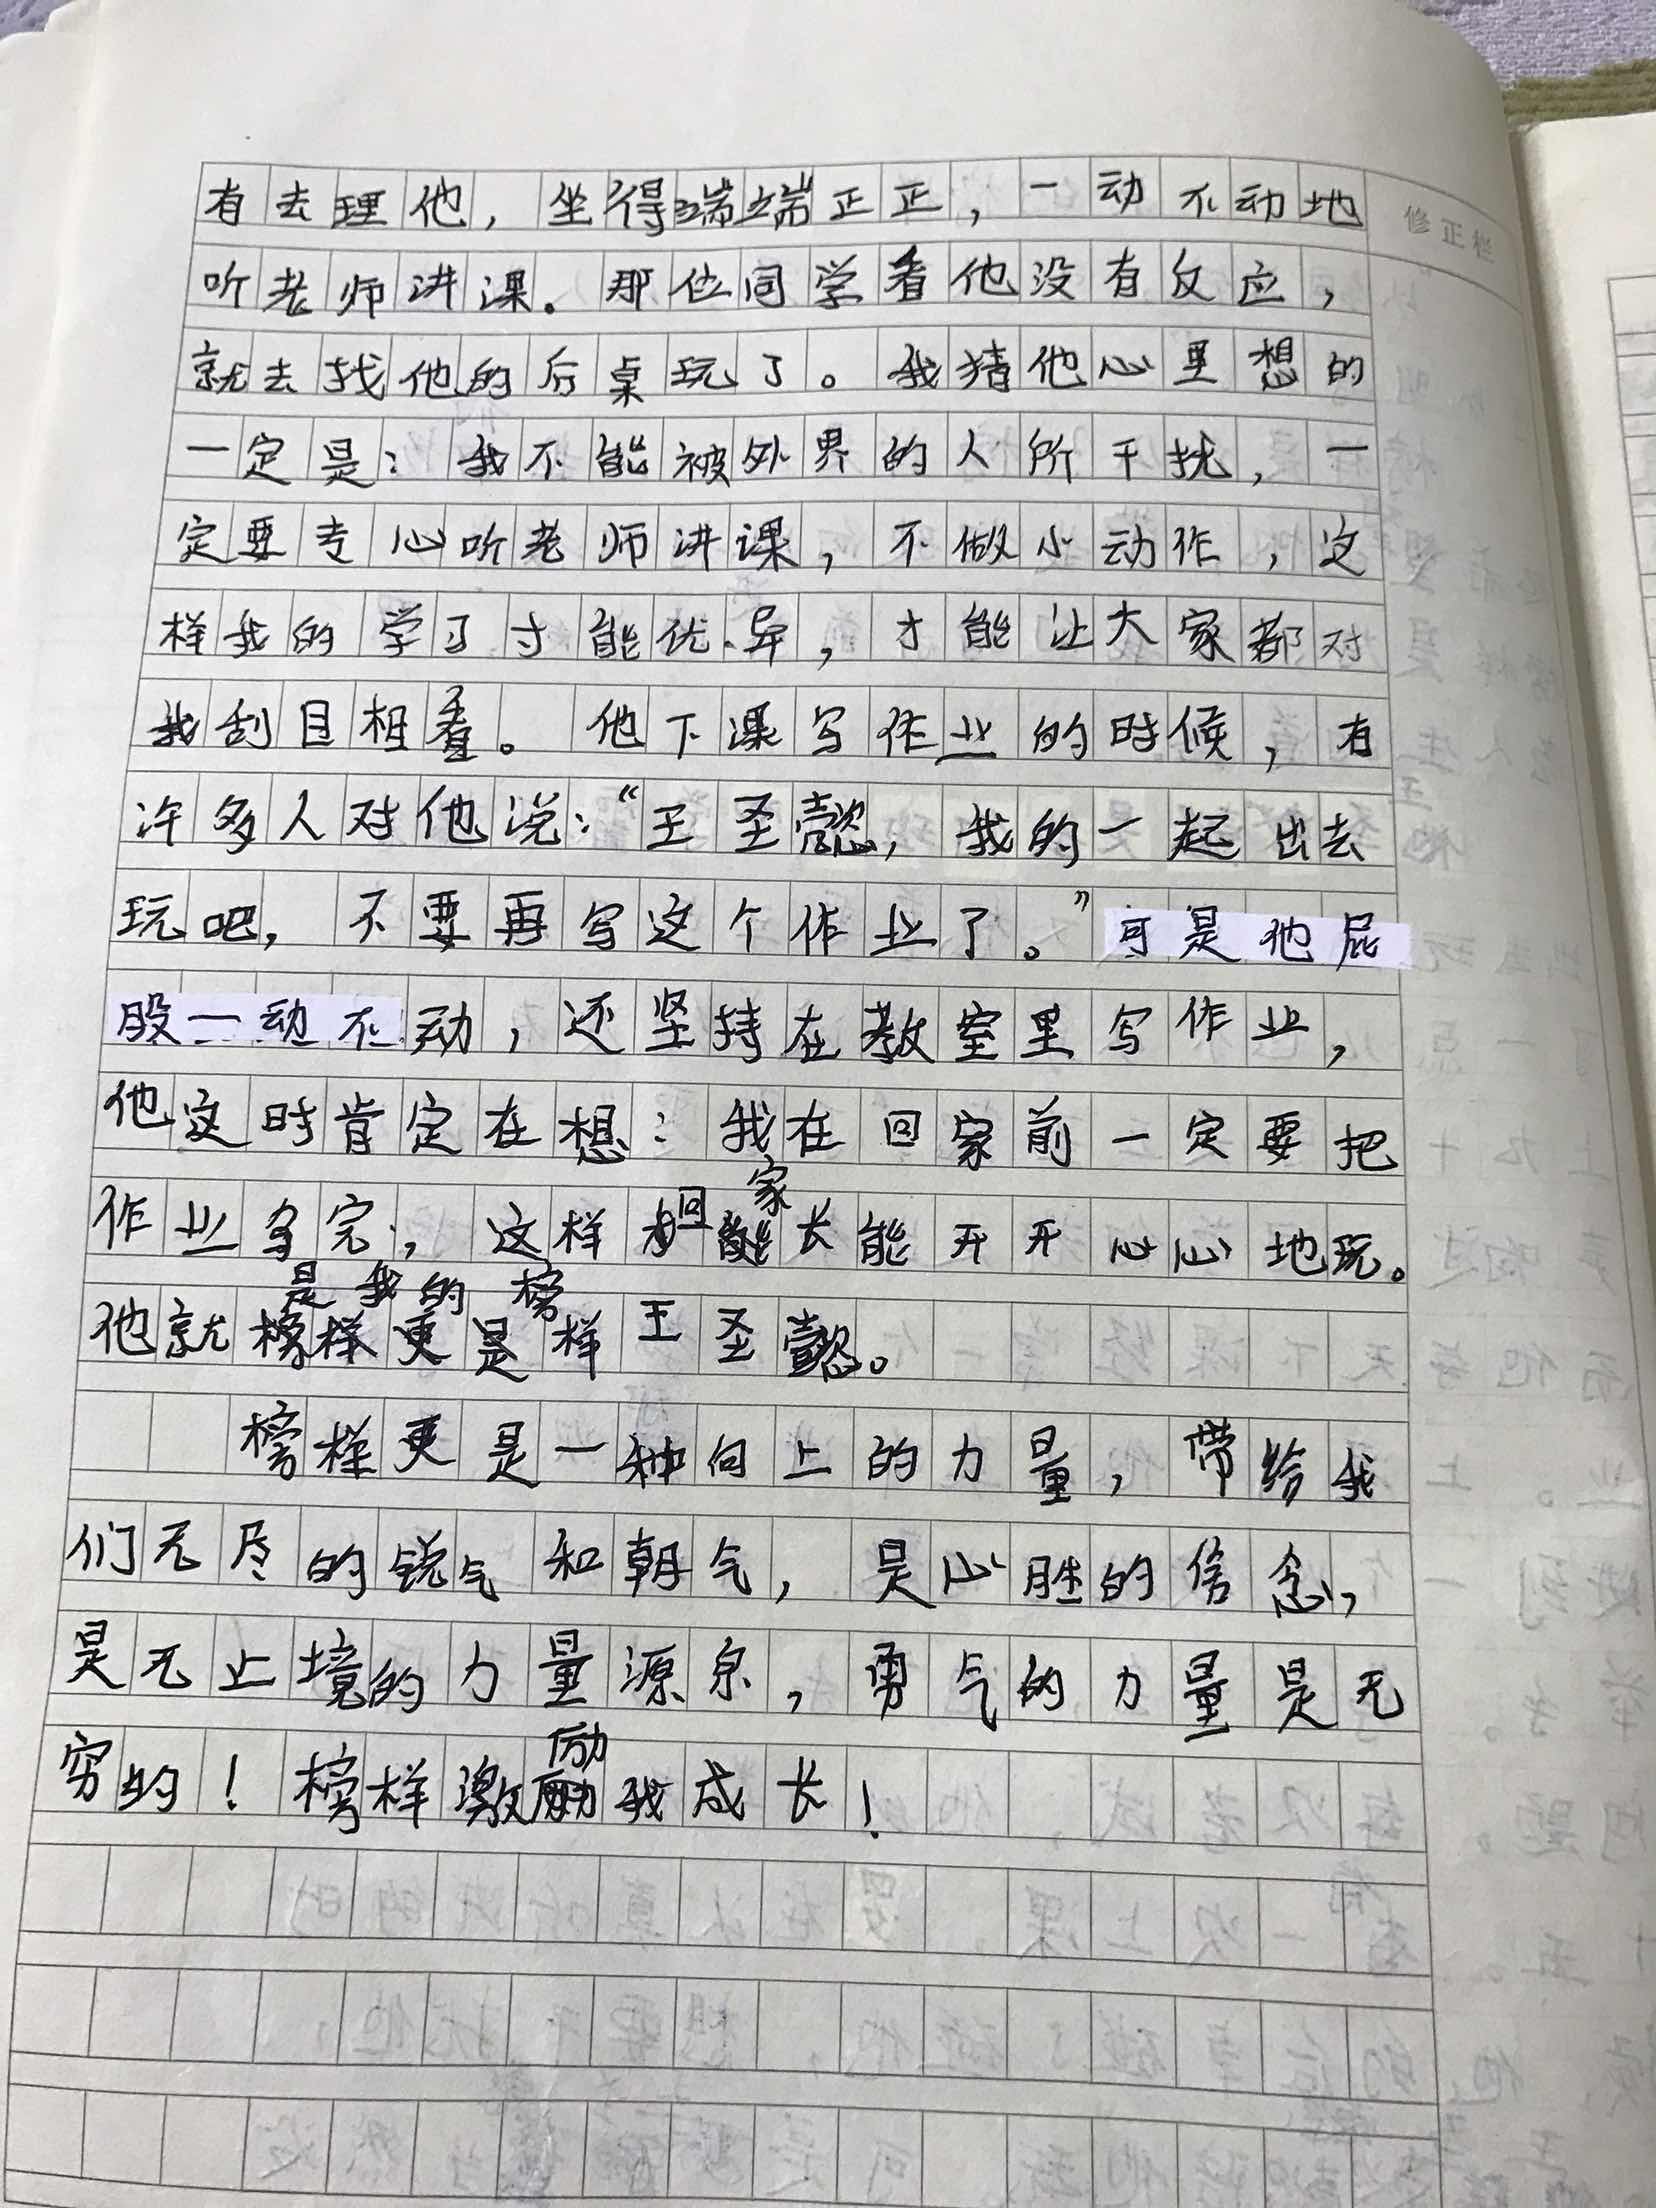 有去理他，坐得端端正正，一动不动地
修正栏
听老师讲课。那位同学看他没有反应，
就去找他的后桌玩了。我猜他心里想的
一定是：我不能被外界的人所干扰，一
定要专心听老师讲课，不做小动作，这
样我的学习寸能优异，才能让大家都对
我刮目相看。他下课写作业的时候，有
许多人对他说：“王圣懿，我的一起出去
玩吧，不要再写这个作业了。”可是他屁
股一动不动，还坚持在教室里写作业，
他这时肯定在想：我在回家前一定要把
作业写完，这样才回家长能开开心心地玩。
他就是我的榜样王圣懿。
榜样更是一种向上的力量，带给我
们无尽的锐气和朝气，是心胜的信念，
是无止境的力量源泉，勇气的力量是无
穷的！榜样激励我成长！